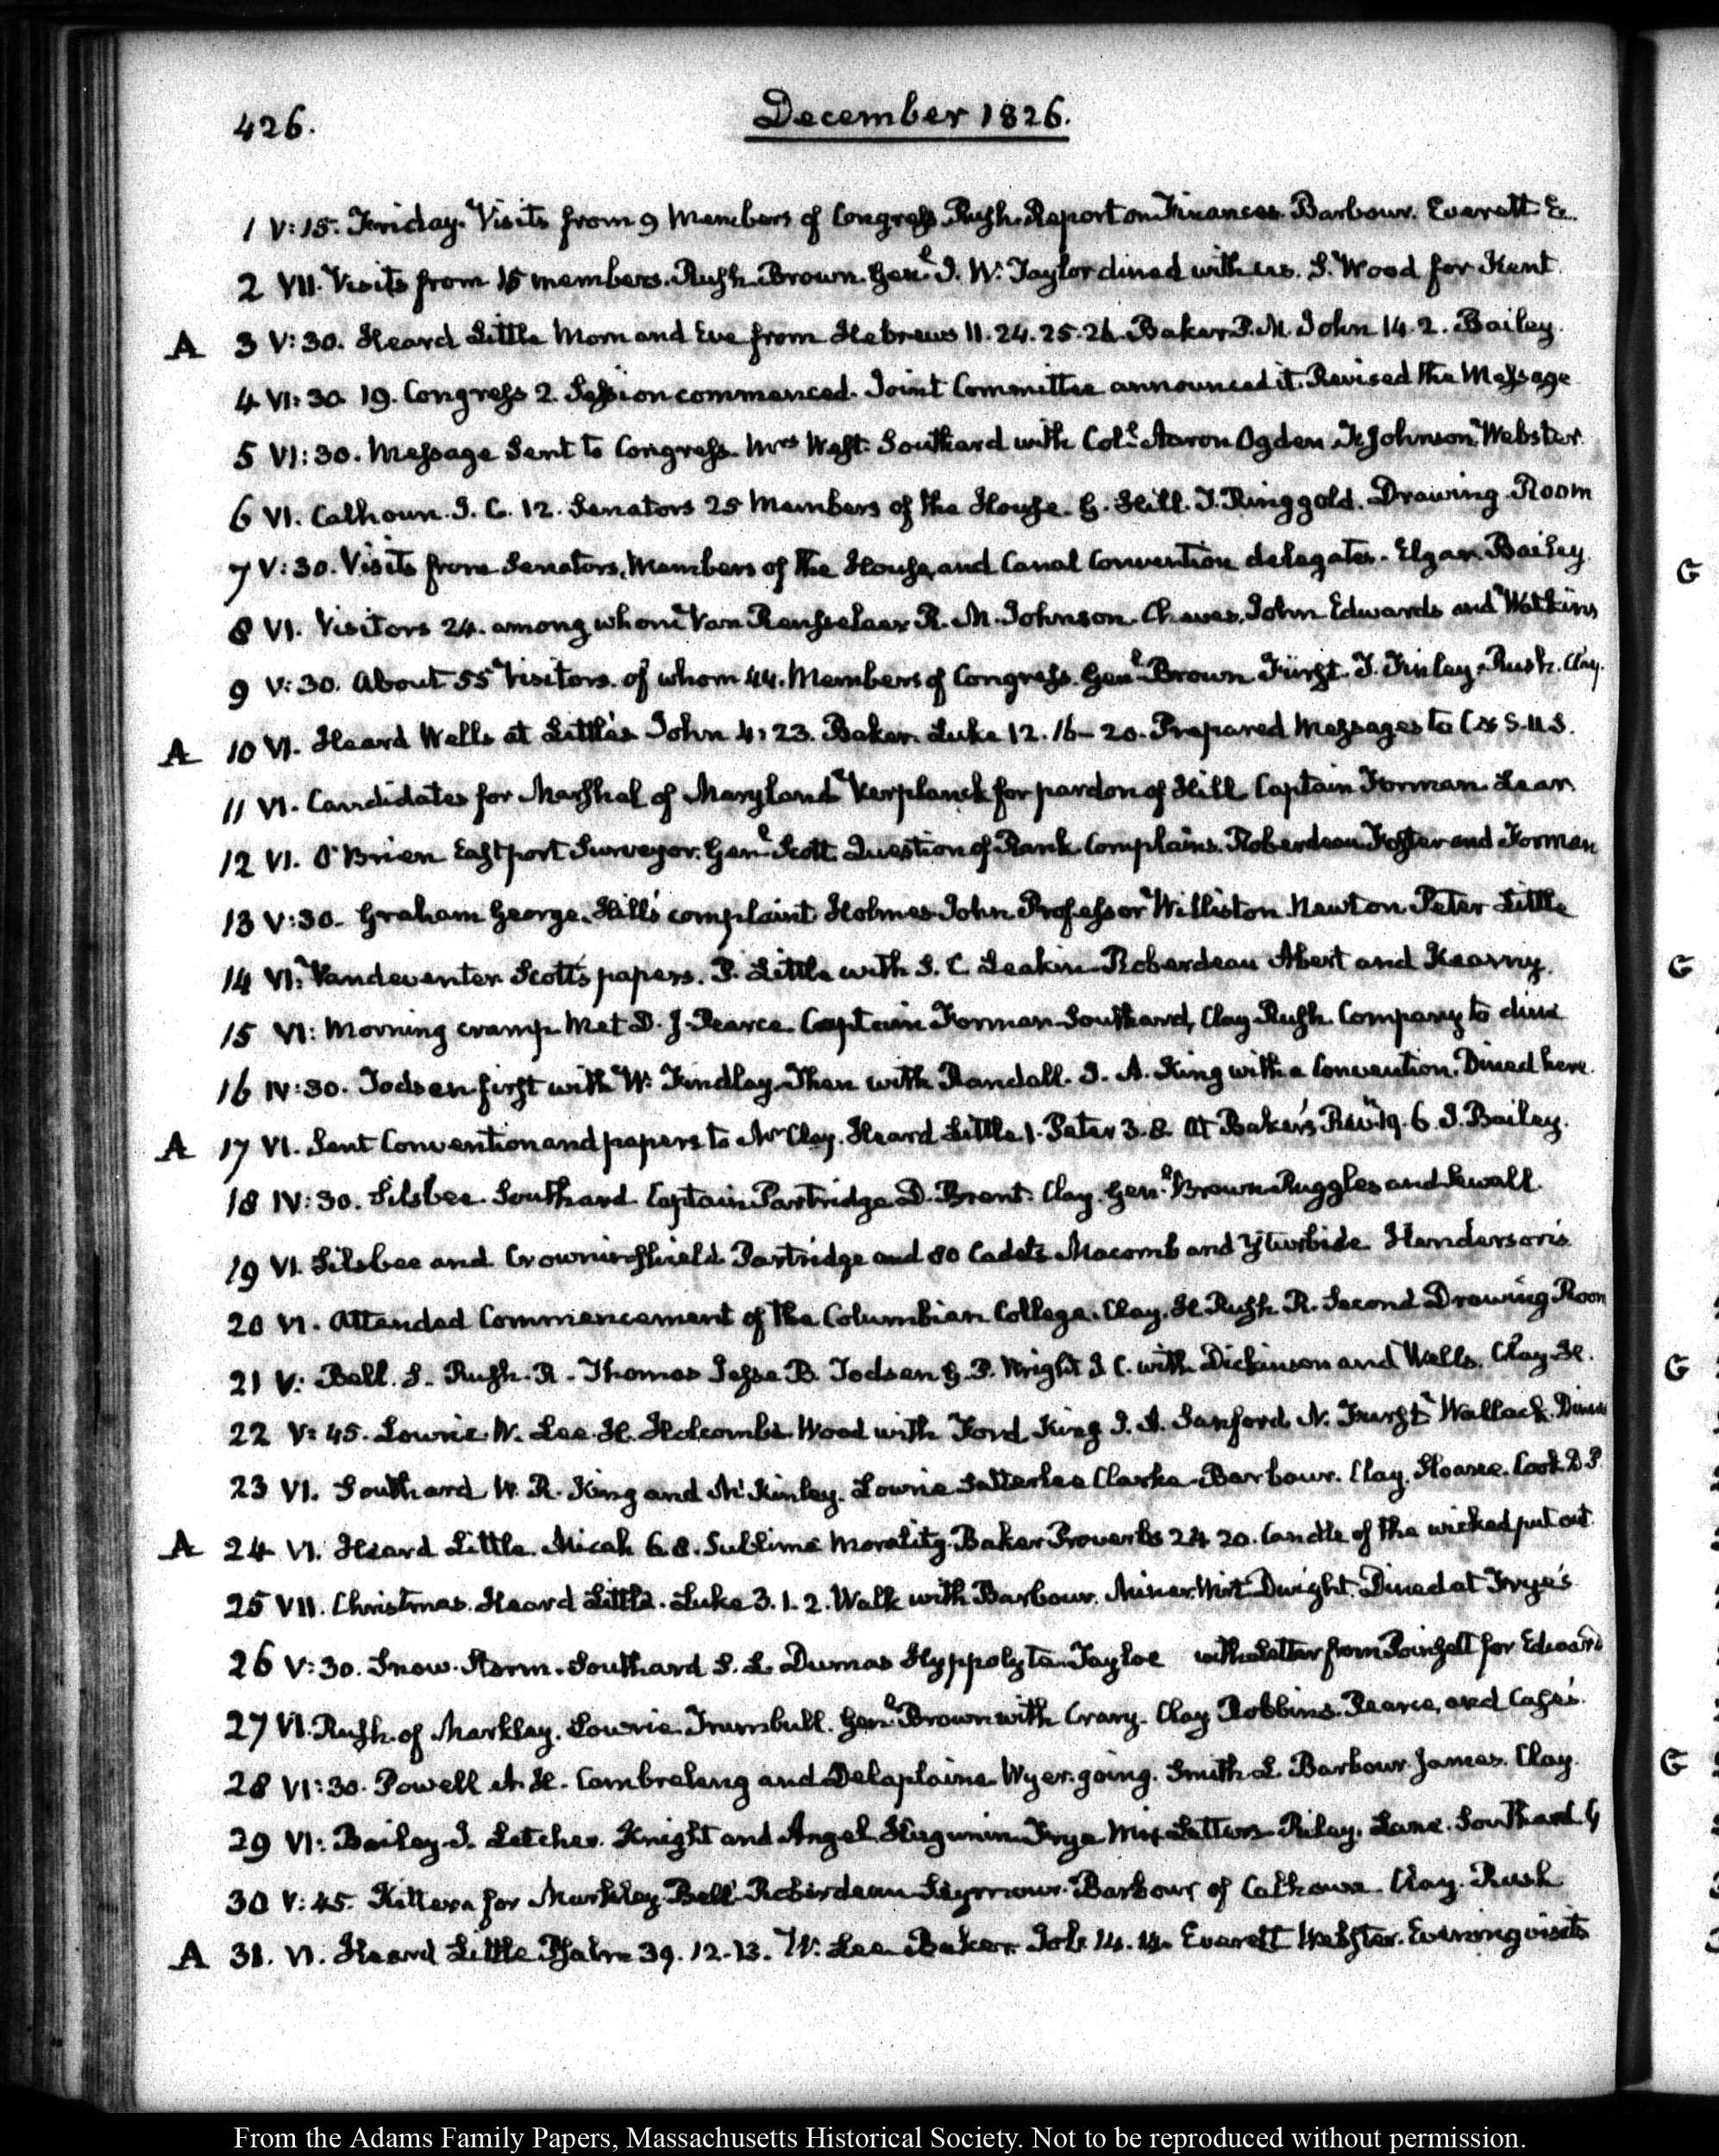 426.
December 1826.
1 V:15. Friday. Visits from 9 Members of Congress. Rush. Report on Finances. Barbour. Everett E.
2 VII. Visits from 15 members. Rush. Brown. Genl. J. W. Taylor dined with us. S. Wood for Kent.
A 3 V:30. Heard Little Morn and Eve from Hebrews 11. 24. 25. 26. Baker P.M. John 14. 2. Bailey.
4 VI:30 19. Congress 2. Session commenced. Joint Committee announced it. Revised the Message
5 VI:30. Message Sent to Congress. Mrs West. Southard with Coll. Aaron Ogden Johnson. Webster.
6 VI. Calhoun. J. C. 12. Senators 25 Members of the House. G. Hill. T. Ringgold. Drawing Room
7 V:30. Visits from Senators, Members of the House, and Canal Convention delegates. Elgar. Bailey.
8 VI. Visitors 24. among whom Van Rensselaer R. M. Johnson. Cheves. John Edwards and Watkins
9 V:30. About 55 Visitors. of whom 44. Members of Congress. Genl. Brown Fürst. J. Finley. Rush. Clay.
A 10 VI. Heard Wells at Little's John 4:23. Baker. Luke 12. 16–20. Prepared Messages to S.U.S.
11 VI. Candidates for Marshal of Maryland Verplanck for pardon of Hill Captain Forman. Lear
12 VI. O'Brien Eastport Surveyor. Genl. Scott. Question of Rank Complains. Roberdeau Foster and Forman
13 V:30. Graham George. Hill's complaint Holmes John Professor Williston. Newton Peter Little
14 VI. Vandeventer Scott's papers. P. Little with S. C. Leakin. Roberdeau Abert and Kearny.
15 VI: Morning cramp. Met D. J. Pearce. Captain Forman Southard, Clay Rush. Company to dine
16 IV:30. Todsen first with W. Findlay. Then with Randall. J. A. King with a Convention. Dined here.
A 17 VI. Sent Convention and papers to Mr Clay. Heard Little 1. Peter 3. 8. At Baker's Revn 19. 6 J. Bailey.
18 IV:30. Silsbee Southard Captain Partridge D. Brent. Clay. Genl. Brown Ruggles and Sewall.
19 VI. Silsbee and Crowninshield Partridge and 80 Cadets Macomb and Yturbide Henderson's
20 VI. Attended Commencement of the Columbian College. Clay. H. Rush. R. Second Drawing Room
21 V: Bell. S. Rush. R. Thomas Jesse B. Todsen G. P. Wright J. C. with Dickinson and Wells. Clay. H.
22 V:45. Lowrie W. Lee. H. Holcombe Wood with Ford King J. A. Sanford. N. Furst Wallack.
23 VI. Southard W. R. King and McKinley. Lowrie Satterlee Clarke Barbour. Clay. Sloane. Cook D. P.
A 24 VI. Heard Little. Micah 6. 8. Sublime Morality. Baker Proverbs 24 20. Candle of the wicked put out
25 VII. Christmas. Heard Little. Luke 3. 1. 2. Walk with Barbour. Miner. Wirt Dwight. Dined at Frye's
26 V:30. Snow Storm. Southard S. L. Dumas Hyppolyte Tayloe with Letter from Poinsett for Edward
27 VI. Rush. of Markley. Lowrie. Trumbull. Genl. Brown with Crary. Clay Robbins. Pearce, and Case's.
28 VI:30. Powell A. H. Cambreleng and Delaplaine Wyer. going. Smith L. Barbour James. Clay.
29 VI: Bailey J. Letcher. Knight and Angel. Hugunin. Frye Mix Letters Riley. Lane. Southard
30 V:45. Kittera for Markley Bell Roberdeau Seymour. Barbour of Calhoun. Clay. Rush
A 31. VI. Heard Little Psalm 39. 12-13. W. Lee Baker. Job 14. 14. Everett Webster. Evening visits
G
G
G
G
From the Adams Family Papers, Massachusetts Historical Society. Not to be reproduced without permission.